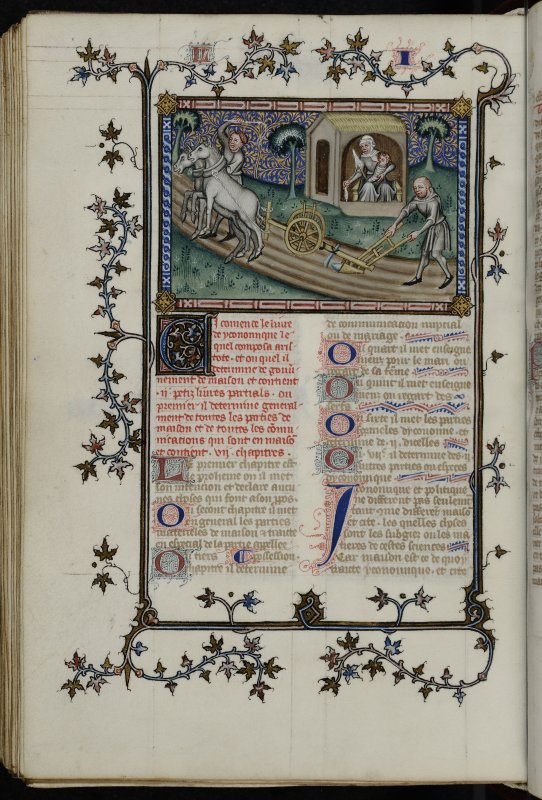 LI
I
Ci comence le livre
de yconomique le
quel composa aris
tote. et ou quel il
determine de gouv
nement de maison et contient
.ii. petiz livres partials. ou
premier il determine general
ment de toutes les parties de
maison et de toutes les comu
nicacions qui sont en maiso
et contient .vij. chapitres.
Le premier chapitre est
le proheme ou il met
son intencion et declaire aucu
nes choses qui sont a son ppos.
Ou secont chapitre il met
en general les parties
materieles de maison et traicte
en especial de la partie appellee
Ou tiers possession.
chapitre il determine
de communicacion nuptial
ou de mariage.
Ou quart il met enseigne
mens pour le mari ou
regart de sa feme.
Ou quint il met enseigne
mens ou regart des
Ou siste il met les parties
especiales diconomie. et
determine de .ii. dicelles
Ou .vije. il determine des ii
autres parties ou especes
yconomique
Iconomique et politique
ne different pas seulemt
tant come different maiso
et cite. les quelles choses
sont les subgiez ou les ma
tieres de cestes sciences
Car maison est ce de quoy
traicte yconomique. et cite